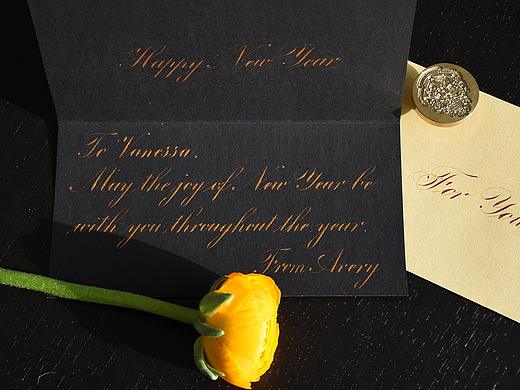 Happy New Year
To Vanessa,
May the joy of New Year be
with you throughout the year.
From Avery
For You